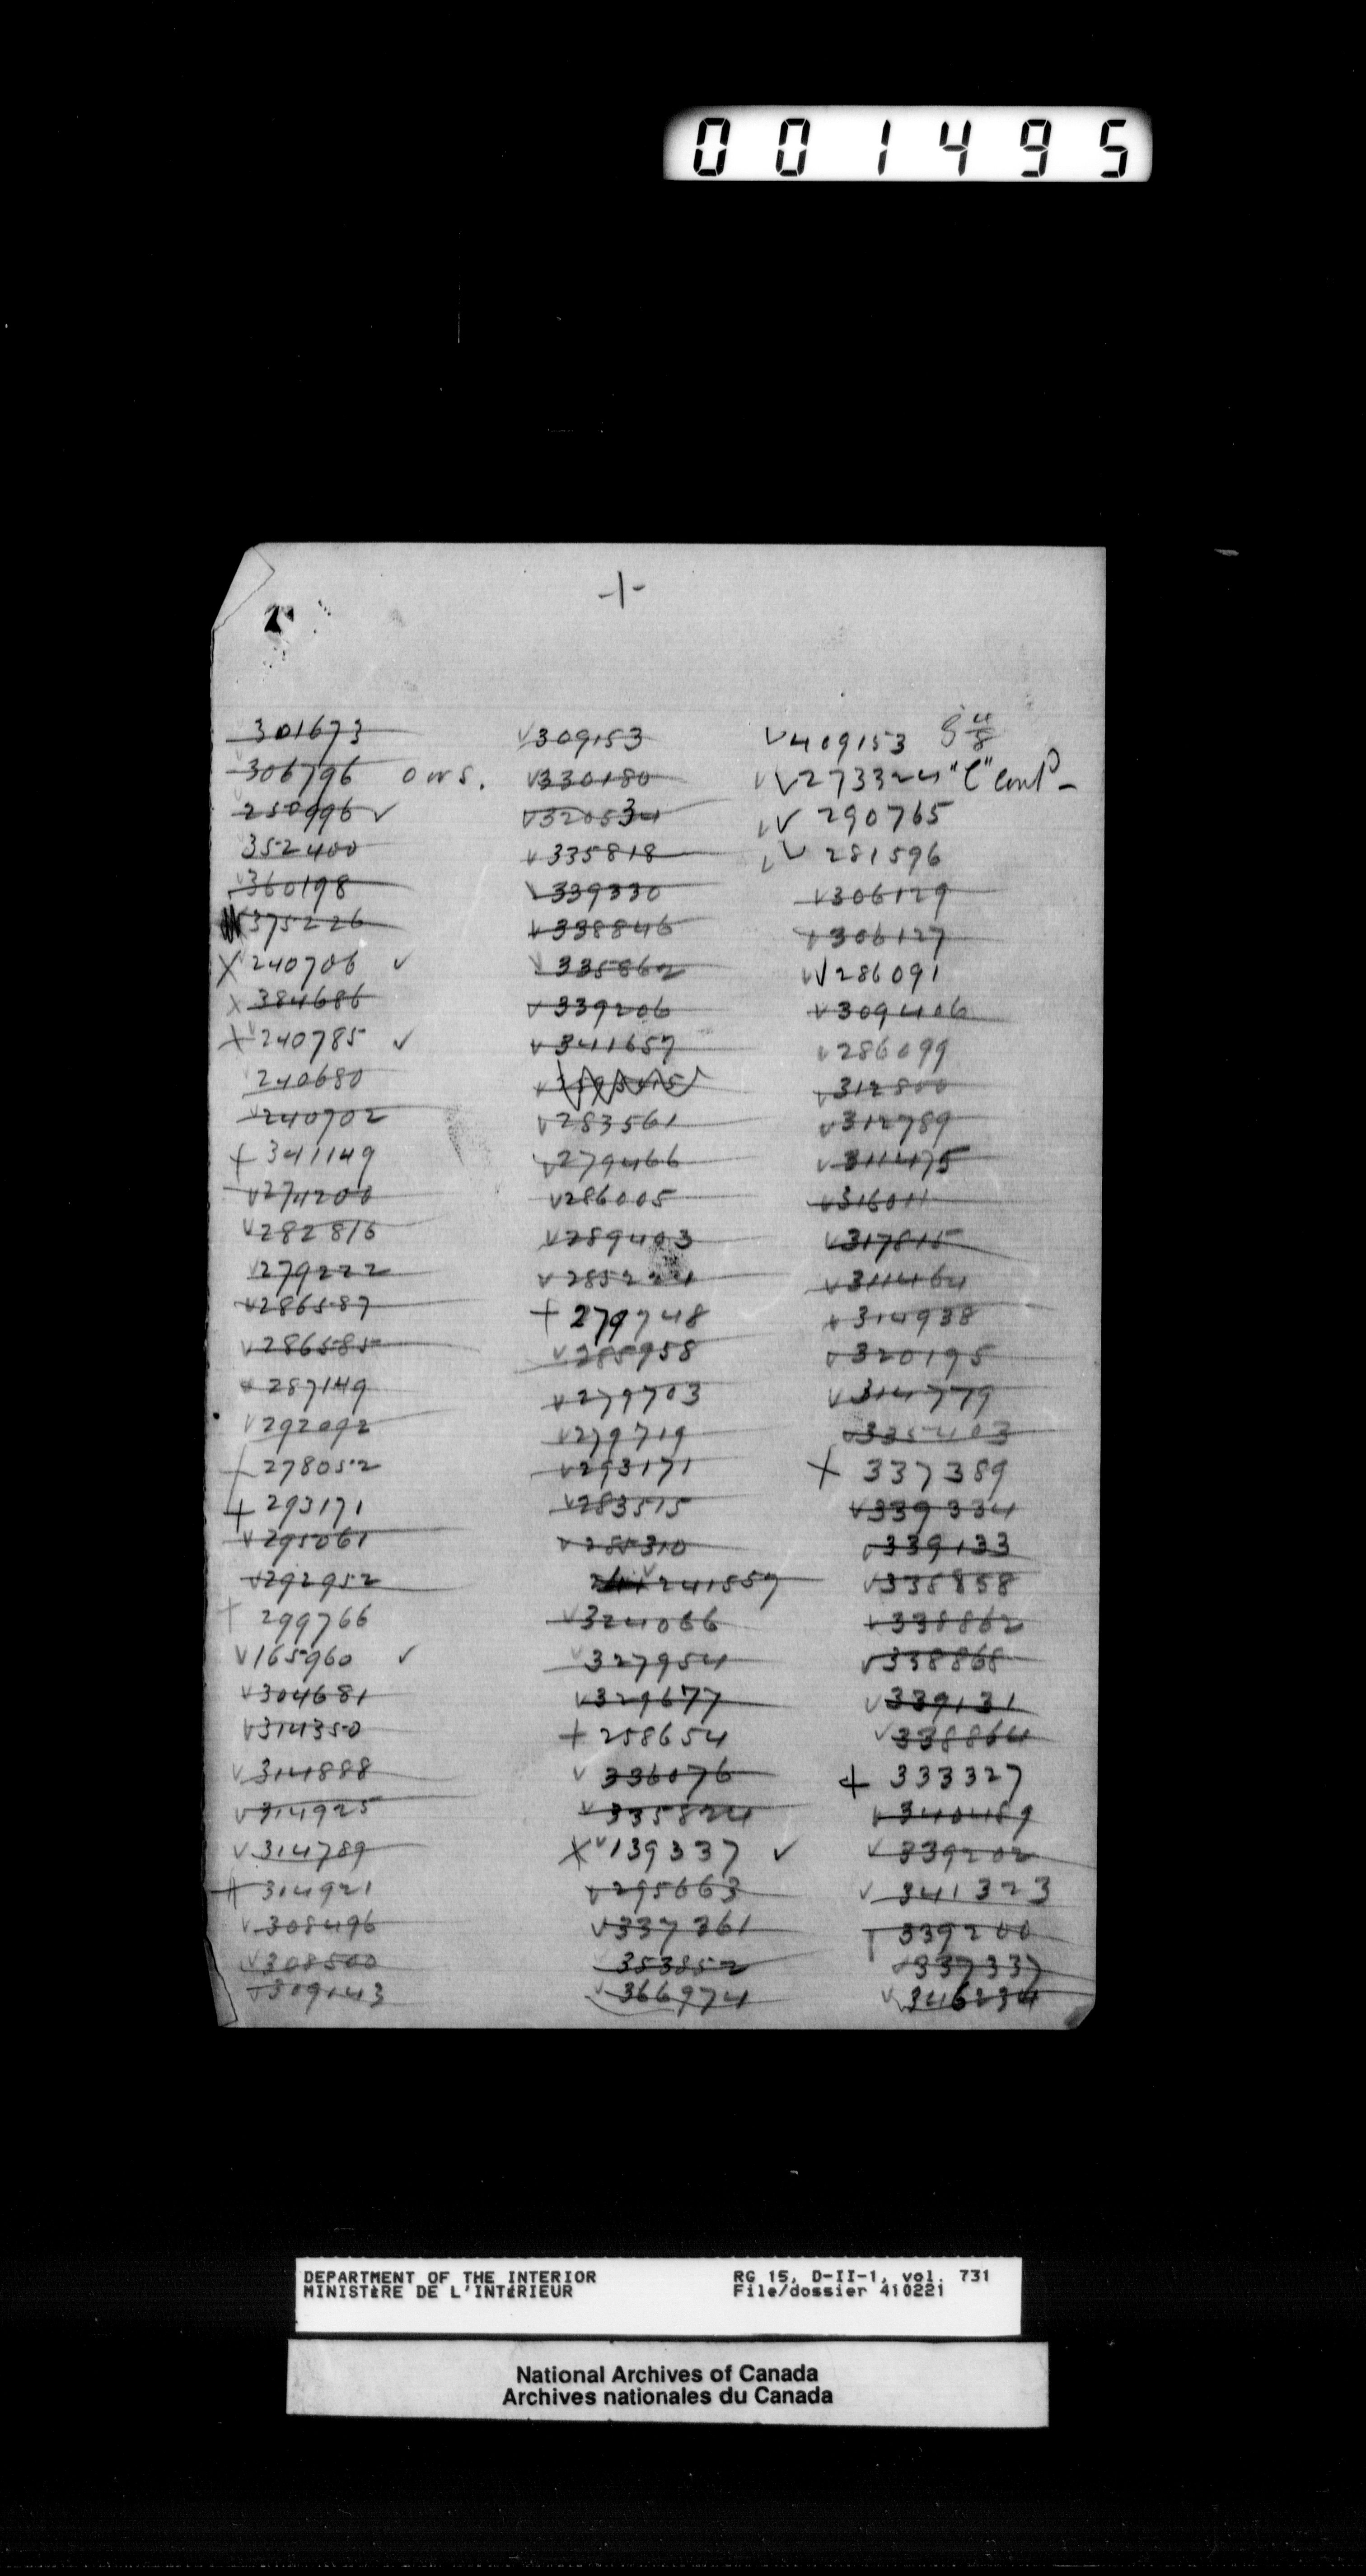 001495
-1-
301673
306796 ours.
250996 ✓
352400
360198
375226
X 240706 ✓
X 384686
X 240785 ✓
240680
✓ 240702
+ 341149
✓ 274200
✓ 282816
✓ 279222
✓ 286587
✓ 286585
✓ 287149
✓ 292092
+ 278052
+ 293171
✓ 295061
✓ 292952
+ 299766
✓ 165960 ✓
✓ 304681
✓ 314350
✓ 314888
✓ 314925
✓ 314789
+ 314921
✓ 308496
✓ 308500
✓ 309143
✓ 309153
✓ 330180
✓ 320534
✓ 335818
✓ 339330
✓ 338846
✓ 335862
✓ 339206
✓ 341657
✓ 283561
✓ 279466
✓ 286005
✓ 289403
✓ 285224
+ 279748
✓ 285958
✓ 279703
✓ 279719
✓ 293171
✓ 283515
✓ 285310
✓ 241557
✓ 324066
✓ 327954
✓ 329677
+ 258654
✓ 336076
✓ 335824
X ✓ 139337 ✓
✓ 295663
✓ 337361
353852
✓ 366974
✓ 409153
✓✓ 273324 "C" cont
✓✓ 290765
✓✓ 281596
✓ 306129
+ 306127
✓✓ 286091
✓ 309406
✓ 286099
✓ 312800
✓ 312789
✓ 311475
✓ 316011
✓ 317815
✓ 311464
+ 314938
✓ 320195
✓ 314779
✓ 335403
+ 337389
✓ 339334
✓ 339133
✓ 338858
✓ 338862
✓ 338868
✓ 339131
✓ 338864
+ 333327
✓ 340459
✓ 339202
✓ 341323
339200
✓ 337337
✓ 346234
DEPARTMENT OF THE INTERIOR RG 15, D-II-1, vol. 731
MINISTÈRE DE L'INTÉRIEUR File/dossier 410221
National Archives of Canada
Archives nationales du Canada